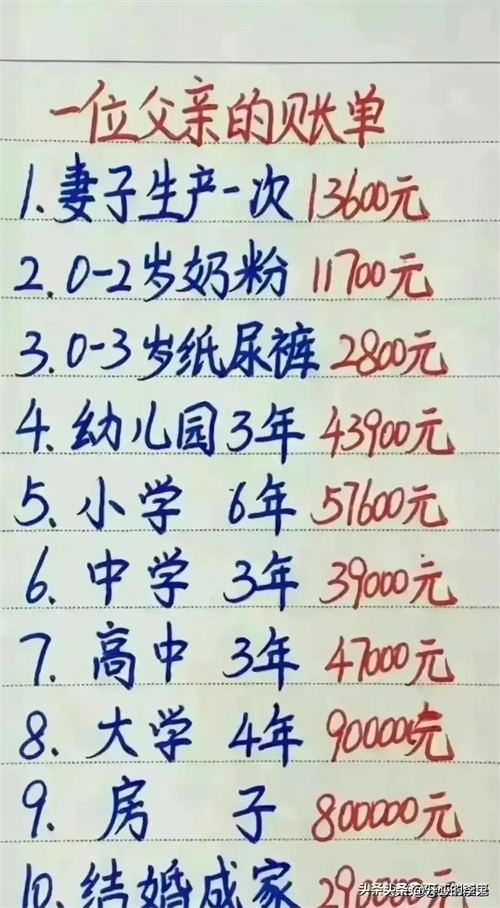 一位父亲的账单
1.妻子生产一次 13600元
2.0-2岁奶粉 11700元
3.0-3岁纸尿裤 2800元
4.幼儿园3年 43900元
5.小学 6年 57600元
6.中学 3年 39000元
7.高中 3年 47000元
8.大学 4年 90000元
9.房子 800000元
10.结婚成家 290000元
头条